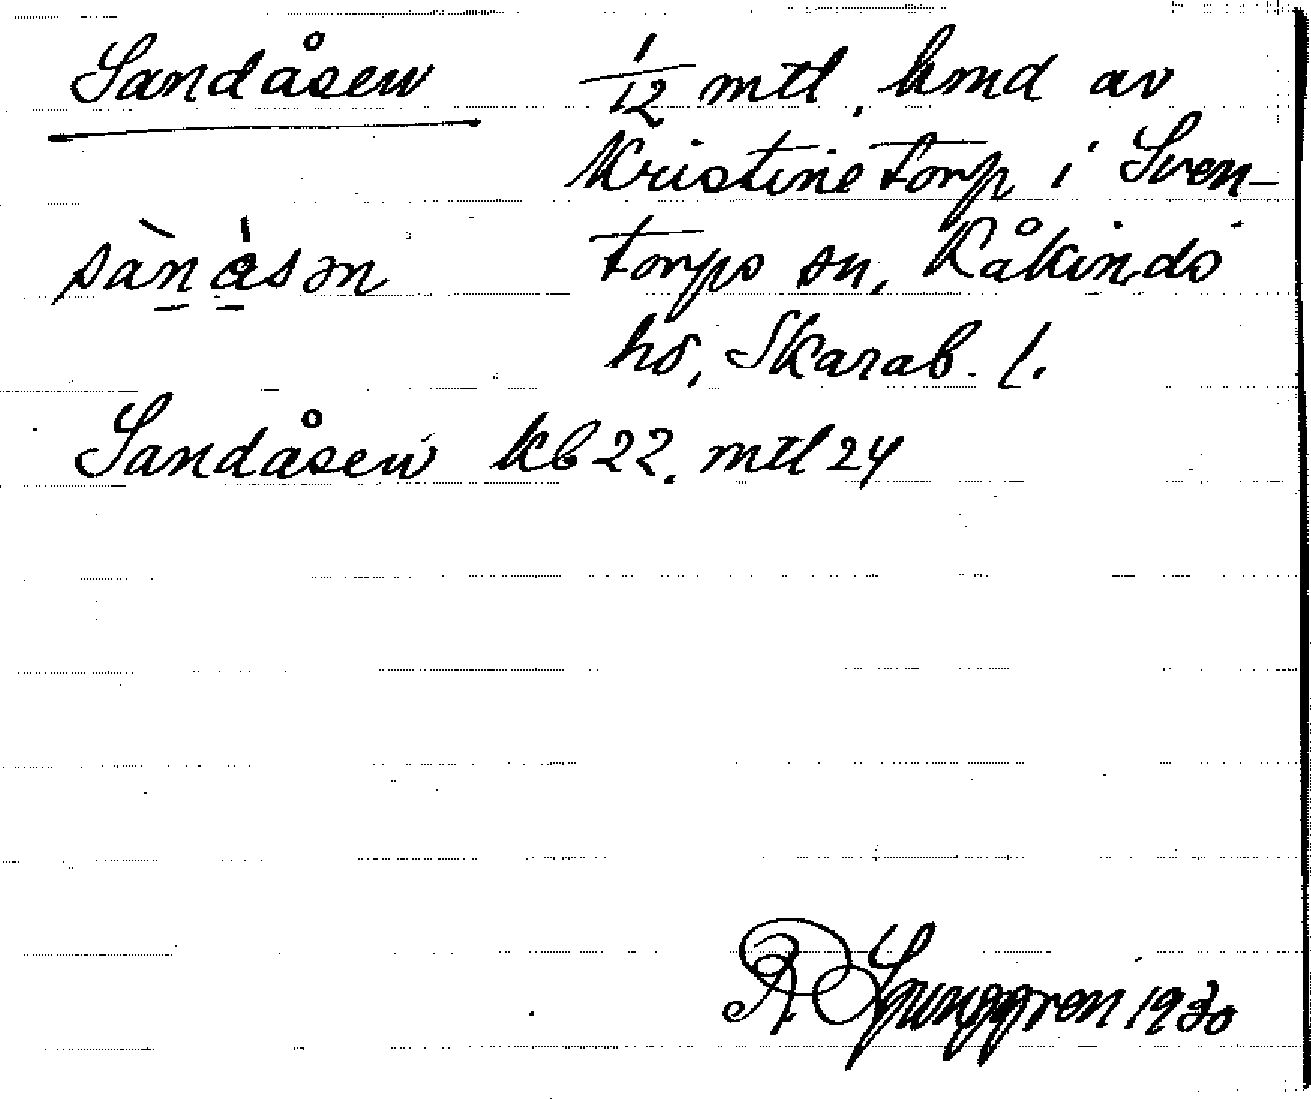 Sandåsen 1/12 mtl, hmd av
Kristinetorp i Sven-
sàn̲á̲sən torps sn, Kåkinds
hd, Skarab. l.
Sandåsen kb 22. mtl 24
R Ljunggren 1930